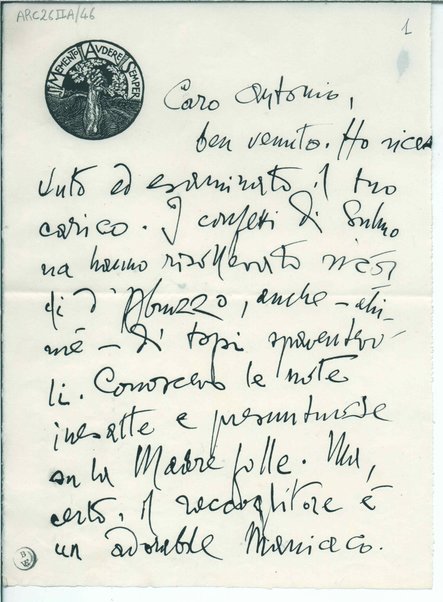 ARC26IIA/46
1
MEMENTO AVDERE SEMPER
Caro Antonio,
ben venuto. Ho rice
vuto ed esaminato il tuo
carico. I confetti di Sulmo
na hanno risollevato ricor
di d'Abruzzo, anche – ahi-
mè – di topi spaventevo-
li. Conoscevo le note
inesatte e presuntuose
su la Madre folle. Ma,
certo, il raccoglitore è
un adorabile Maniaco.